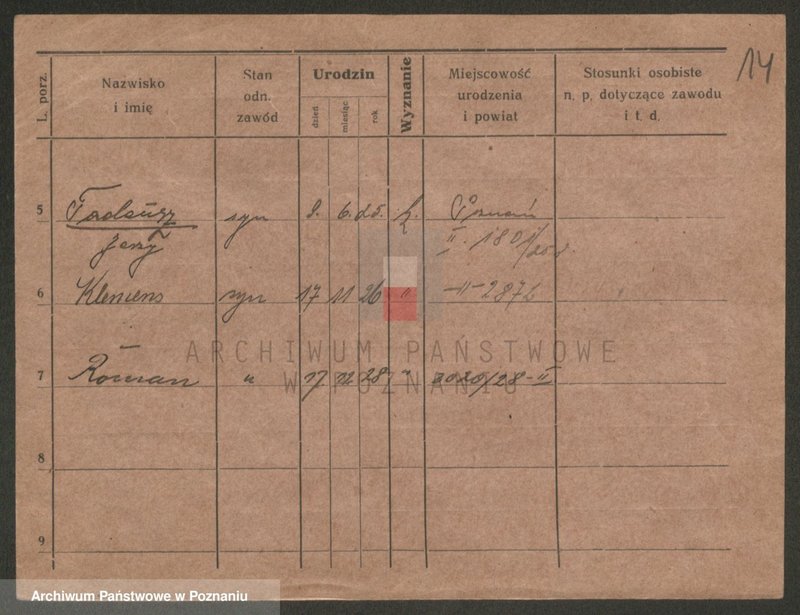 14
L. porz.
Nazwisko
i imię
Stan
odn.
zawód
Urodzin
dzień
miesiąc
rok
Wyznanie
Miejscowość
urodzenia
i powiat
Stosunki osobiste
n. p. dotyczące zawodu
i t. d.
5 Tadeusz syn 9. 6. 25. k. Poznań
Jerzy II. 1801/25
6 Klemens syn 17 11 26 " -"-
7 Roman " 17 12 28 " 3020/28-II
8
9
ARCHIWUM PAŃSTWOWE
W POZNANIU
Archiwum Państwowe w Poznaniu